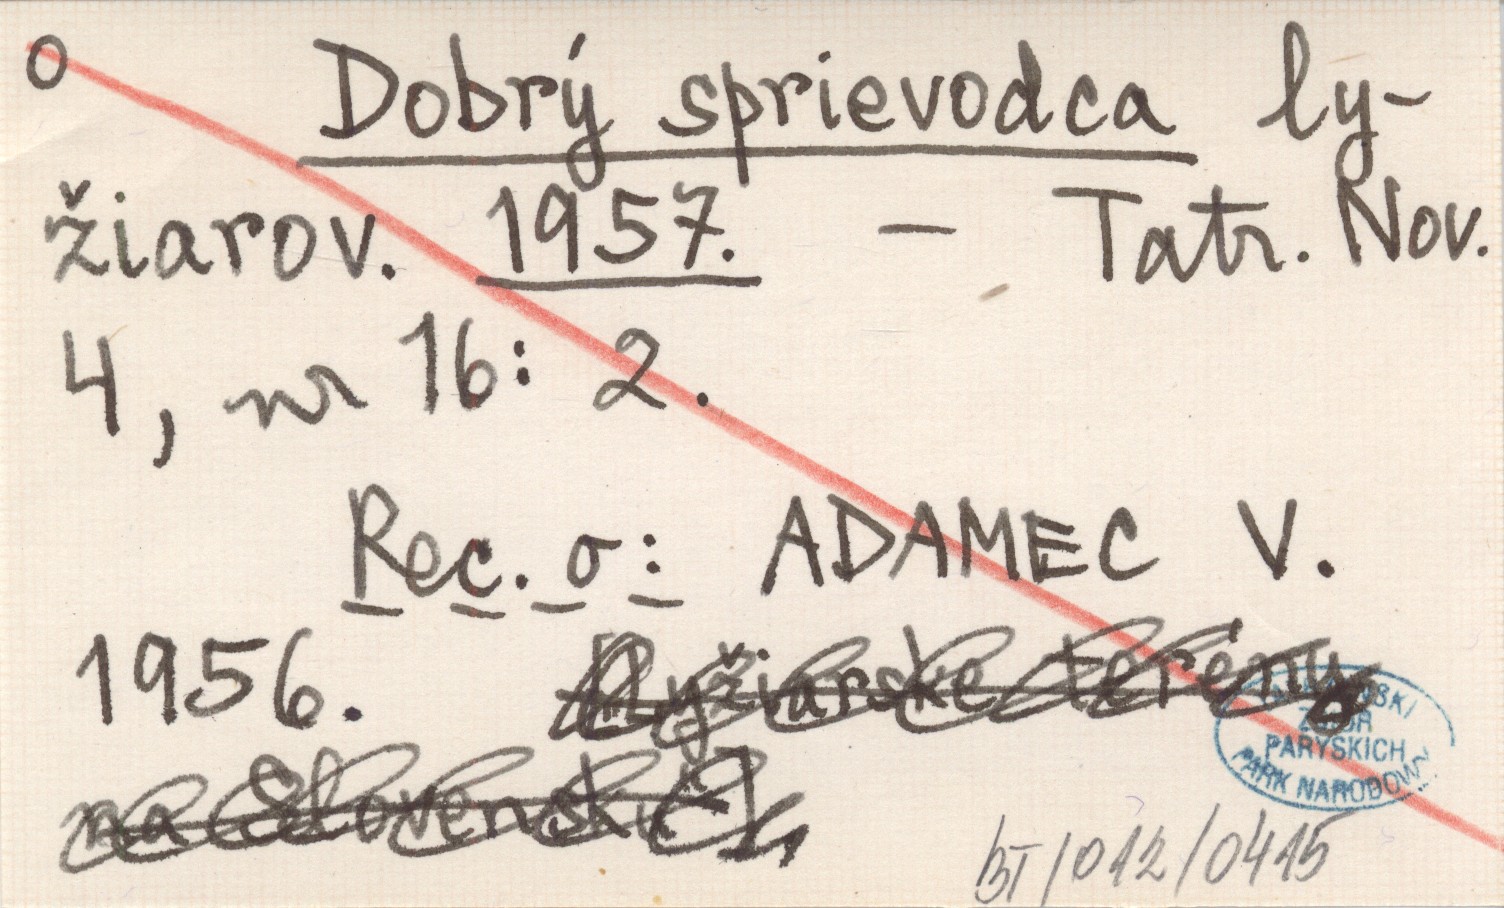 o Dobrý sprievodca ly-
žiarov. 1957. – Tatr. Nov.
4, nr 16: 2.
Rec. o: ADAMEC V.
1956. [Lyžiarske terény
na Slovensku].
ZBIÓR
PARYSKICH
PARK NARODOWY
BT/012/0415